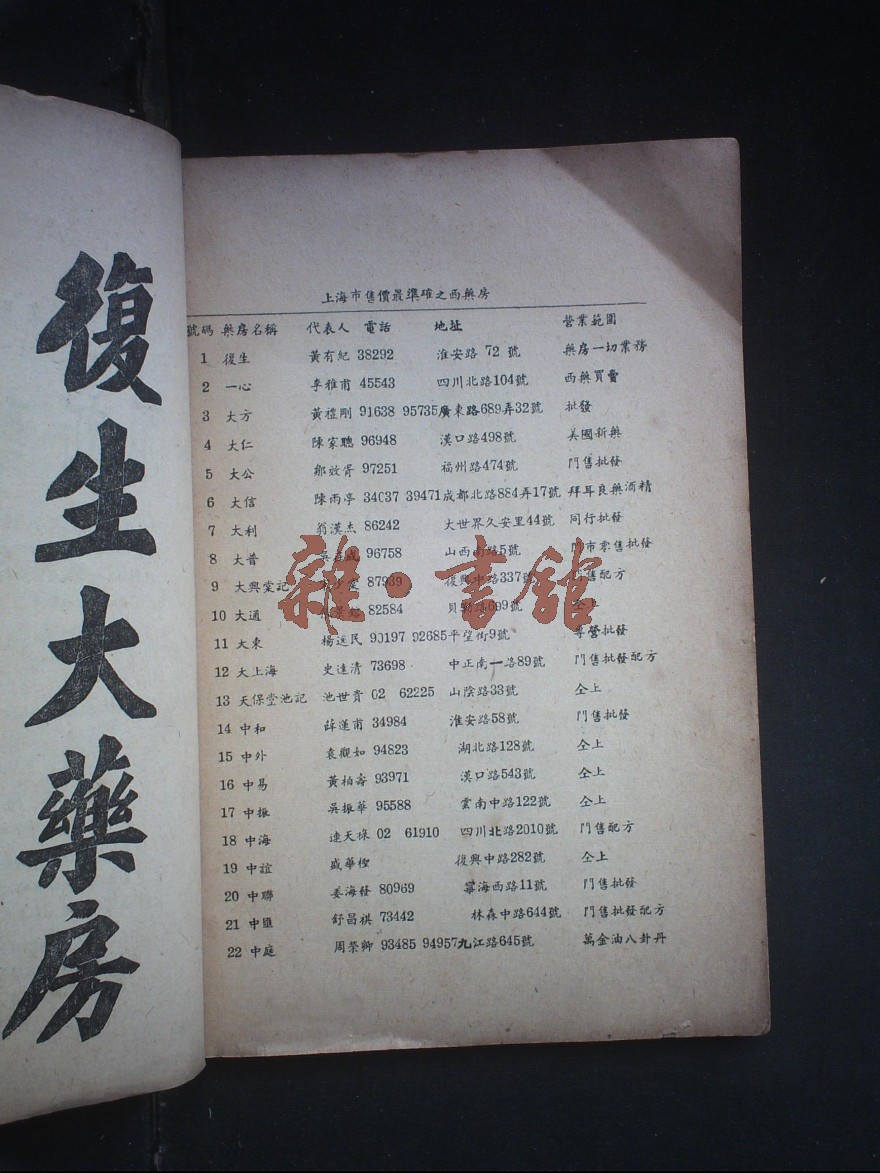 復生大藥房
上海市售價最準確之西藥房
號碼 藥房名稱 代表人 電話 地址 營業範圍
1 復生 黃有紀 38292 淮安路 72 號 藥房一切業務
2 一心 李雅甫 45543 四川北路104號 西藥買賣
3 大方 黃禮剛 91638 95735廣東路689弄32號 批發
4 大仁 陳家聰 96948 漢口路498號 美國新藥
5 大公 鄭效胥 97251 福州路474號 門售批發
6 大信 陳雨亭 34037 39471成都北路884弄17號 拜耳良藥酒精
7 大利 翁漢杰 86242 大世界久安里44號 同行批發
8 大普 96758 山西南路5號 門市零售批發
9 大興棠記 87939 復興中路337號 門售配方
10 大通 82584 貝勒路699號 仝上
11 大東 楊逖民 90197 92685平望街9號 專營批發
12 大上海 史達清 73698 中正南一路89號 門售批發配方
13 天保堂池記 池世貴 02 62225 山陰路33號 仝上
14 中和 薛蓮甫 34984 淮安路58號 門售批發
15 中外 袁觀如 94823 湖北路128號 仝上
16 中易 黃柏壽 93971 漢口路543號 仝上
17 中振 吳振華 95588 雲南中路122號 仝上
18 中海 連天祿 02 61910 四川北路2010號 門售配方
19 中誼 盛華 復興中路282號 仝上
20 中聯 姜海發 80969 寧海西路11號 門售批發
21 中匯 舒昌祺 73442 林森中路644號 門售批發配方
22 中庭 周榮卿 93485 94957九江路645號 萬金油八卦丹
雜·書館